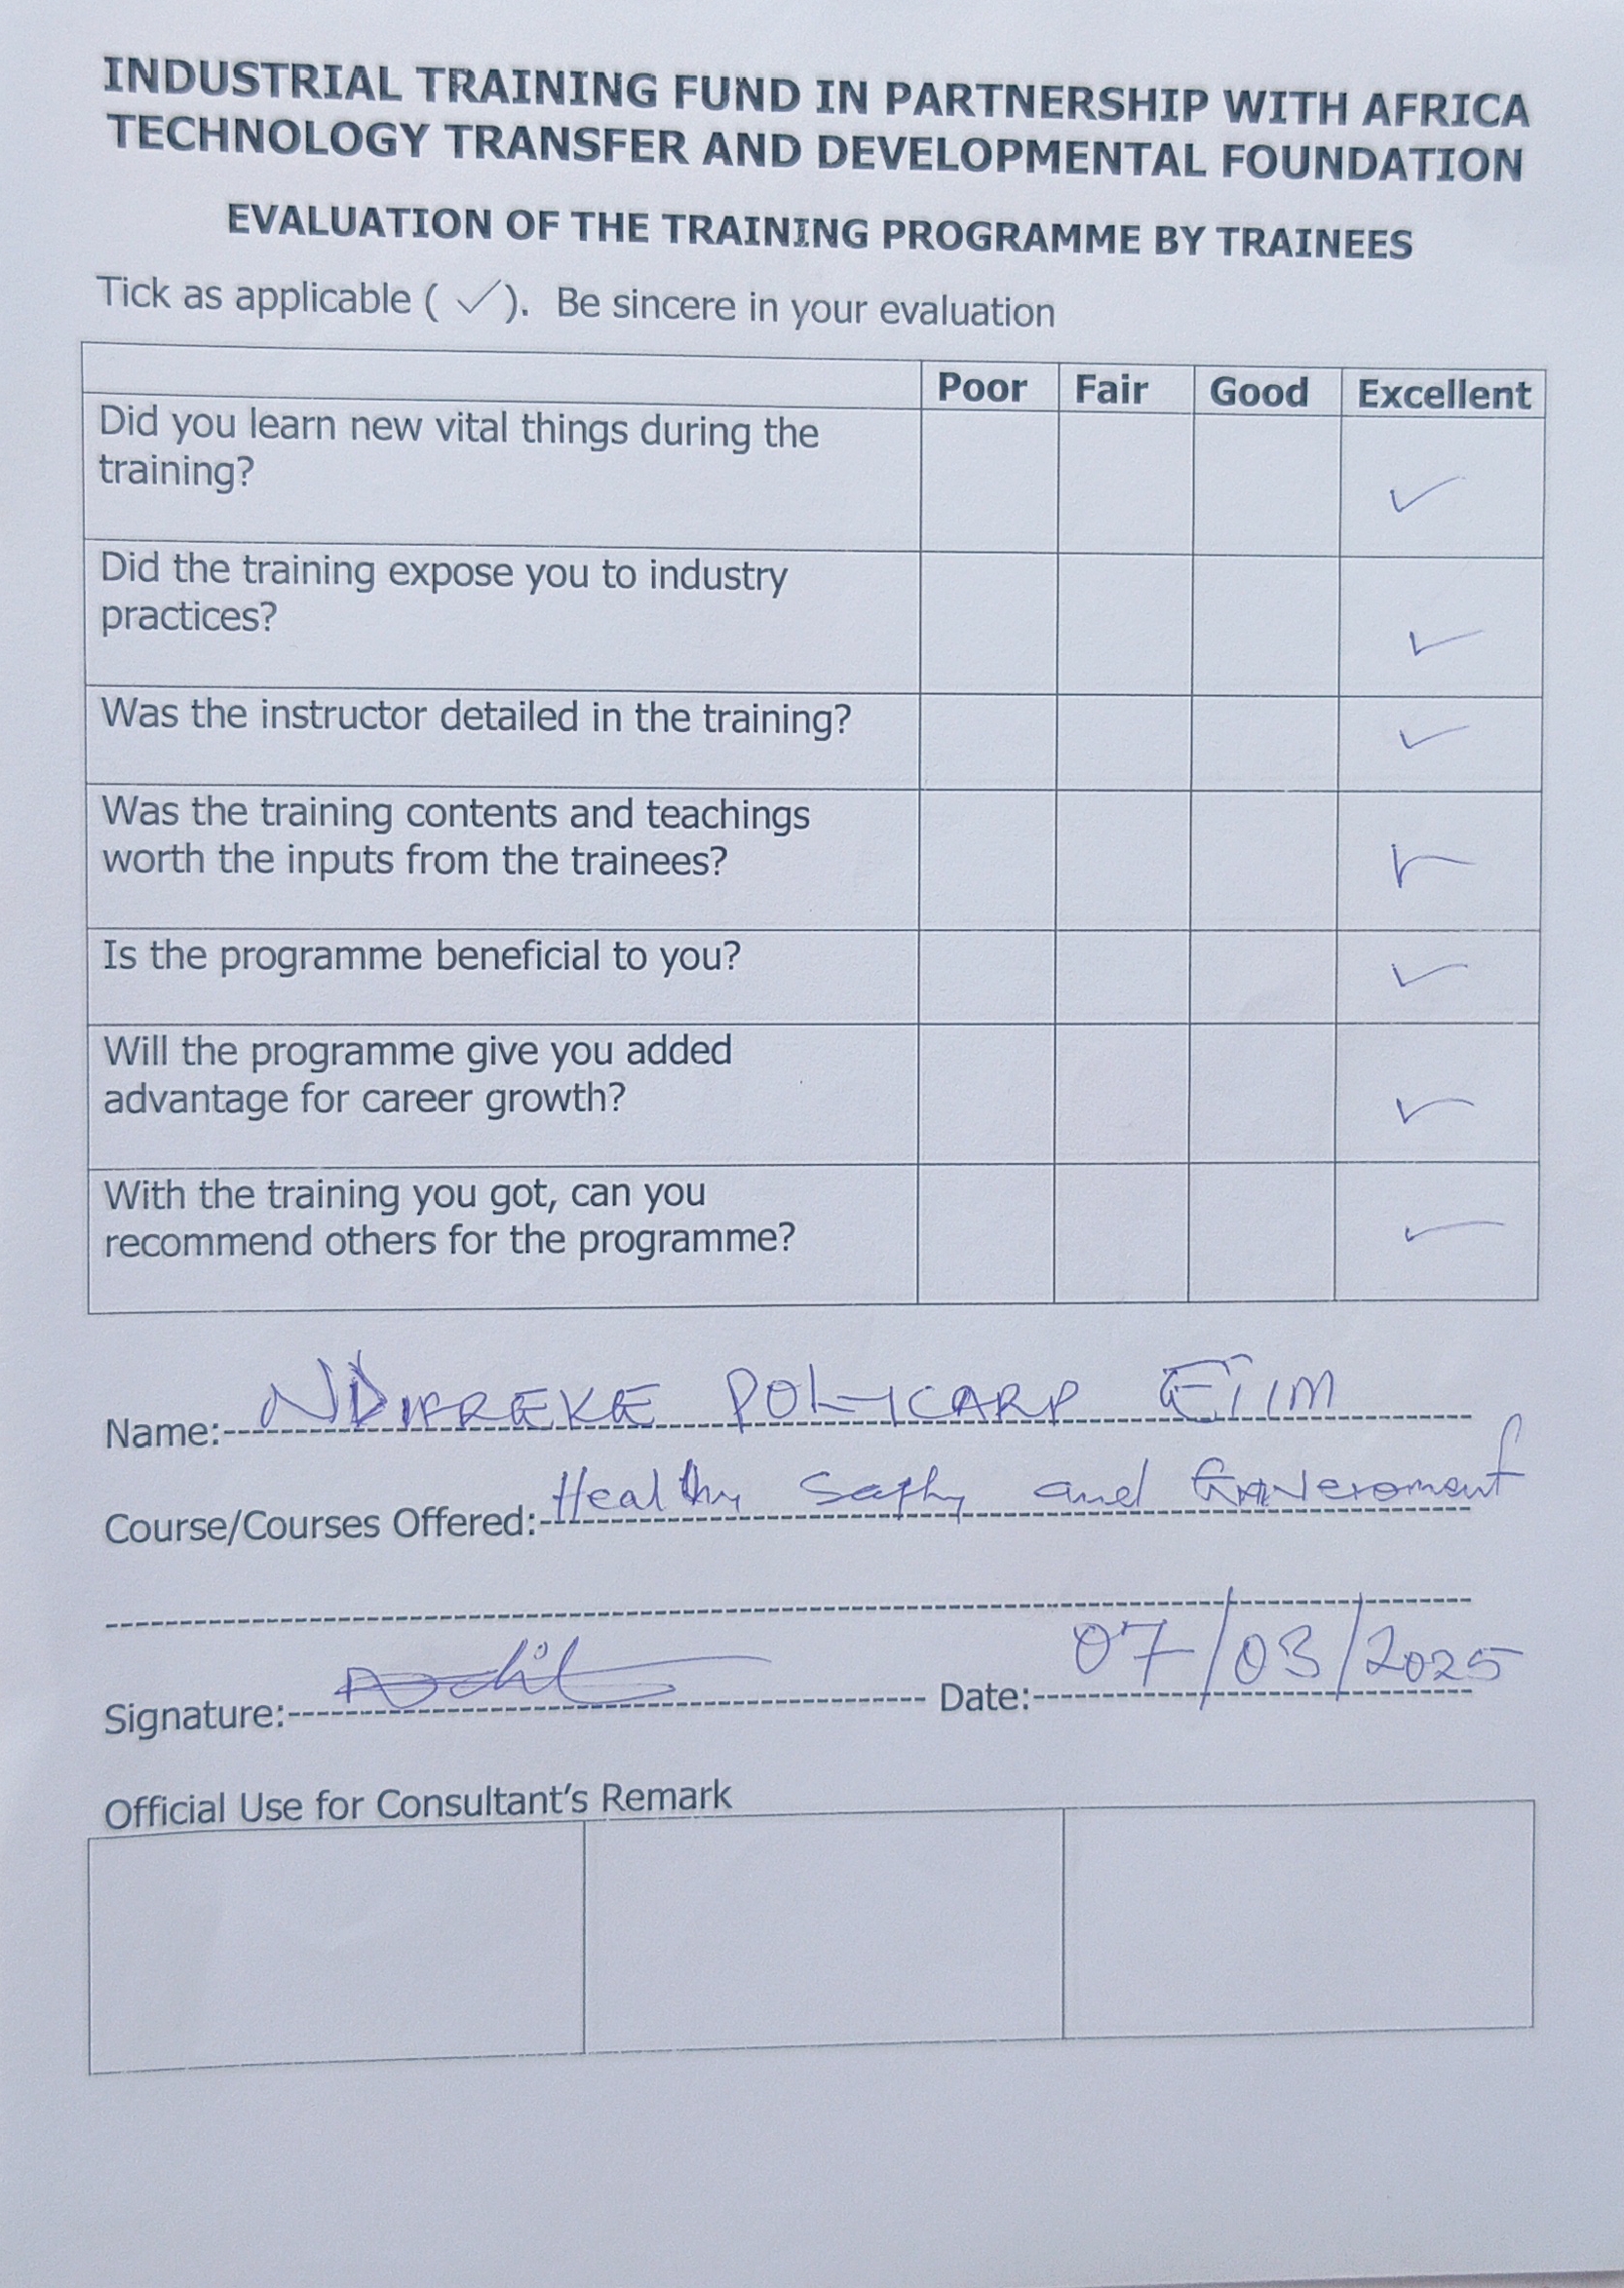 INDUSTRIAL TRAINING FUND IN PARTNERSHIP WITH AFRICA
TECHNOLOGY TRANSFER AND DEVELOPMENTAL FOUNDATION
EVALUATION OF THE TRAINING PROGRAMME BY TRAINEES
Tick as applicable ( ✓ ). Be sincere in your evaluation
Poor Fair Good Excellent
Did you learn new vital things during the
training?
✓
Did the training expose you to industry
practices?
✓
Was the instructor detailed in the training? ✓
Was the training contents and teachings
worth the inputs from the trainees? ✓
Is the programme beneficial to you? ✓
Will the programme give you added
advantage for career growth? ✓
With the training you got, can you
recommend others for the programme? ✓
Name: NDIFREKE POLYCARP ETIM
Course/Courses Offered: and
Signature: Date: 07/03/2025
Official Use for Consultant's Remark